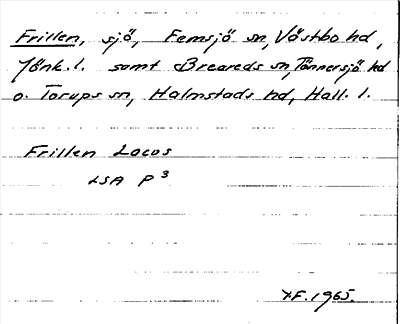 Frillen, sjö, Femsjö sn, Västbo hd,
Jönk. l. samt Breareds sn, Tönnersjö hd
o. Torups sn, Halmstads hd, Hall. l.
Frillen Locus
LSA P 3
F. 1965.